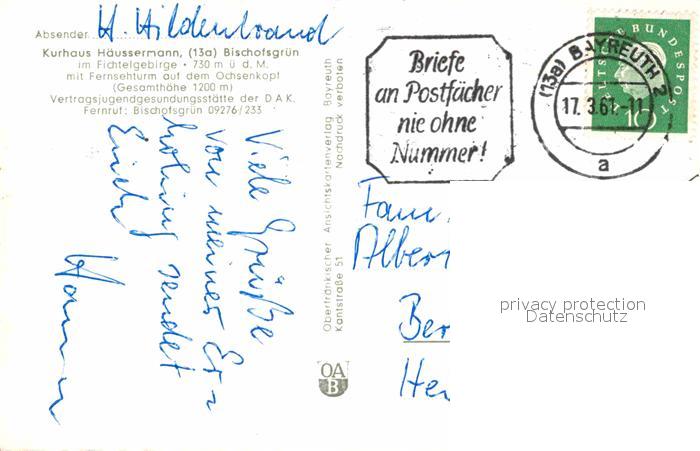 Absender H. Hildenbrand
Kurhaus Häussermann, (13a) Bischofsgrün
im Fichtelgebirge • 730 m ü. d. M.
mit Fernsehturm auf dem Ochsenkopf
(Gesamthöhe 1200 m)
Vertragsjugendgesundungsstätte der DAK.
Fernruf: Bischofsgrün 09276/233
Viele Grüße
von meiner Er=
holung sendet
Euch
Oberfränkischer Ansichtskartenverlag Bayreuth
Kantstraße 51 Nachdruck verboten
OA
B
Briefe
an Postfächer
nie ohne
Nummer!
(13a) BAYREUTH 2
17.3.61.-11
a
DEUTSCHE BUNDESPOST
10
Fam.
Albert
Ber
Her
privacy protection
Datenschutz